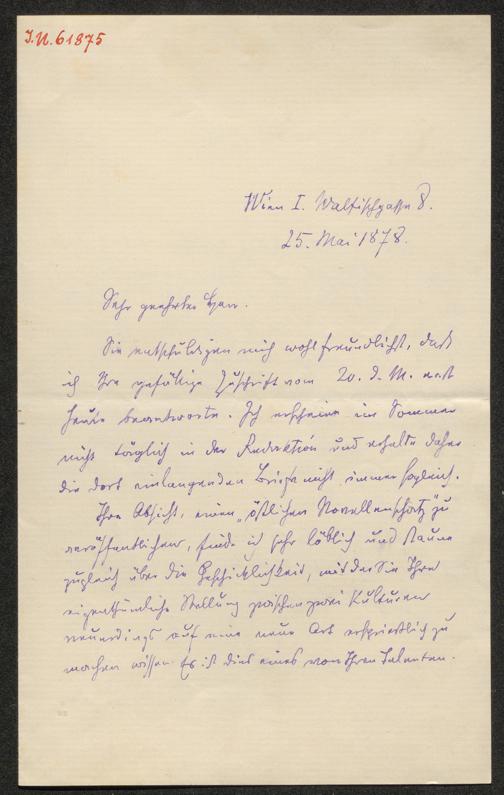 I.N. 61875
Wien I. Walfischgasse 8.
25. Mai 1878.
Sehr geehrter Herr.
Sie entschuldigen mich wohl freundlichst, daß
ich Ihre gefällige Zuschrift vom 20. d. M. erst
heute beantworte. Ich erscheine im Sommer
nicht täglich in der Redaktion und erhalte daher
die dort einlangenden Briefe nicht immer sogleich.
Ihre Absicht, einen „östlichen Novellenschatz" zu
veröffentlichen, finde ich sehr löblich und staune
zugleich über die Geschicklichkeit, mit der Sie Ihre
eigenthümliche Stellung zwischen zwei Kulturen
neuerdings auf eine neue Art ersprießlich zu
machen wissen. Es ist dies eines von Ihren Talenten.